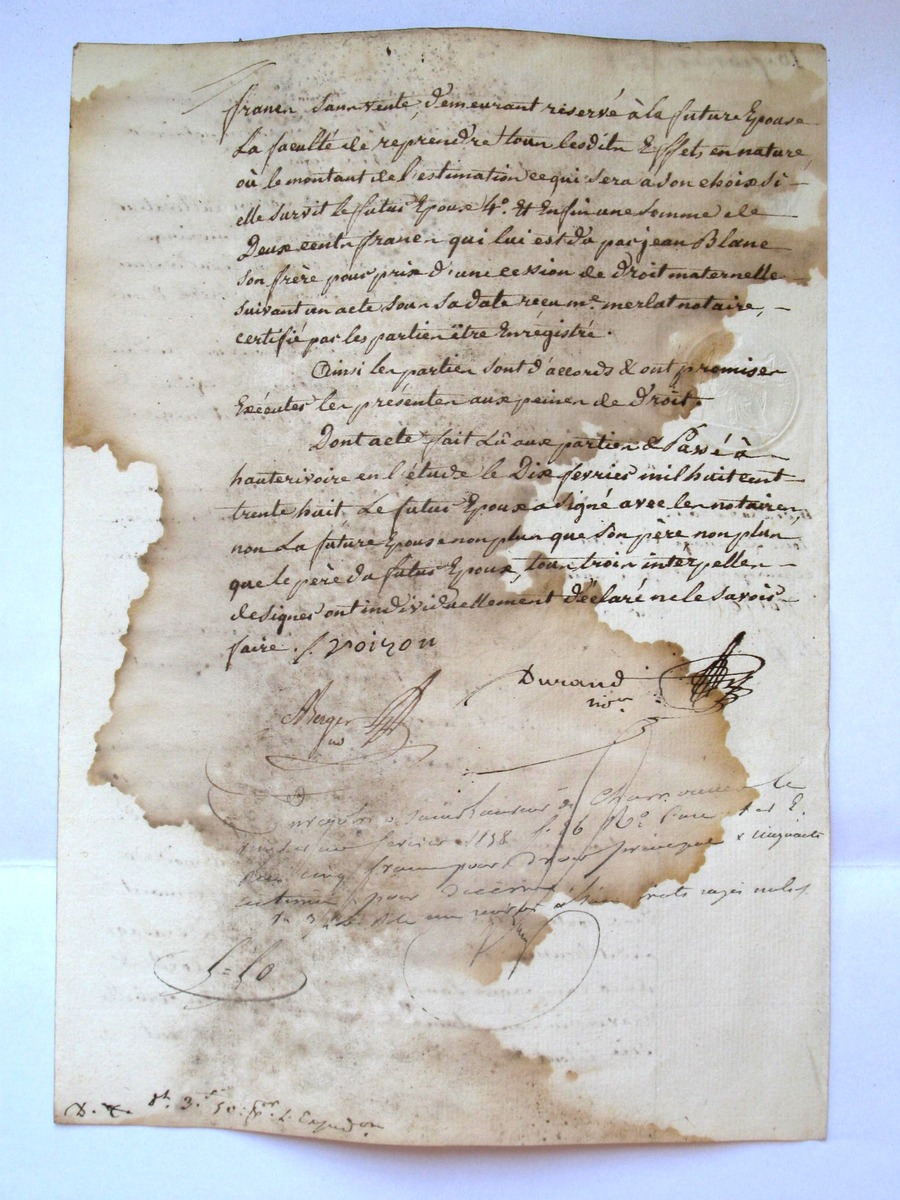 francs sans vente, demeurant réservé à la future Epouse
La faculté de reprendre tous lesdits Effets en nature,
où le montant de l'estimation ce qui sera à son choix si
elle survit le futur Epoux 4.° Et Enfin une somme de
Deux cents francs qui lui est dû par jean Blanc
son frère pour prix d'une cession de droit maternelle
suivant un acte sous sa date reçu m.e merlat notaire,
certifié par les parties être Enrégistré.
Ainsi les parties sont d'accords & ont promises
Exécuter les présentes aux peines de droit.
Dont acte fait Lû aux parties & Passé à
hauterivoire en l'étude le Dix fevrier mil huit cent
trente huit Le futur Epoux a signé avec les notaires,
non La future Epouse non plus que son père non plus
que le père du futur Epoux, tous trois interpellés
de signer ont individuellement déclaré ne le savoir
faire. /. Voizon
Durand
n.re
Berger
no
fevrier 1838 f. 36
cinq francs pour droit principal & cinquante
centimes pour décime
rayés nuls
D. X. 3.f 50